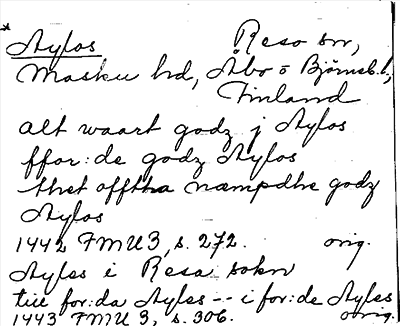 Aylos Reso sn,
Masku hd, Åbo o Björneb. l,
Finland
alt waart godz j Aylos
ffor:de godz Aylos
thet offtha næmpdhe godz
Aylos
1442 FMU 3, s. 272. orig.
Ayles i Resa sokn
till for:da Ayles -- i for:de Ayles
1443 FMU 3, s. 306. orig.